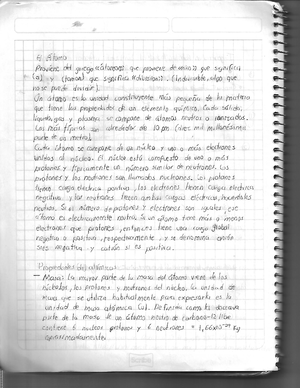 El Átomo
Proviene del griego «átomos» que proviene de «a» que significa
[a] y (tomos) que significa «división». (Indivisible, algo que
no se puede dividir).
Un átomo es la unidad constituyente más pequeña de la materia
que tiene las propiedades de un elemento químico. Cada sólido,
líquido, gas y plasma se compone de átomos neutros o ionizados.
Los más típicos son alrededor de 10 pm (diez mil millonésima
parte de un metro).
Cada átomo se compone de un núcleo y uno o más electrones
unidos al núcleo. El núcleo está compuesto de uno o más
protones y típicamente un número similar de neutrones. Los
protones y los neutrones son llamados nucleones. Los protones
tienen carga eléctrica positiva, los electrones tienen carga eléctrica
negativa y los neutrones tienen ambas cargas eléctricas, haciéndolos
neutros. Si el número de protones y electrones son iguales, ese
átomo es eléctricamente neutro. Si un átomo tiene más o menos
electrones que protones, entonces tiene una carga global
negativa o positiva, respectivamente, y se denomina anión
si es negativa y catión si es positiva.
Propiedades del átomo:
- Masa: La mayor parte de la masa del átomo viene de los
nucleones, los protones y neutrones del núcleo. La unidad de
masa que se utiliza habitualmente para expresarla es la
unidad de masa atómica (u). Definida como la doceava
parte de la masa de un átomo neutro de carbono-12 libre
contiene 6 protones y 6 neutrones = 1,66x10⁻²⁷ Kg
aproximadamente.